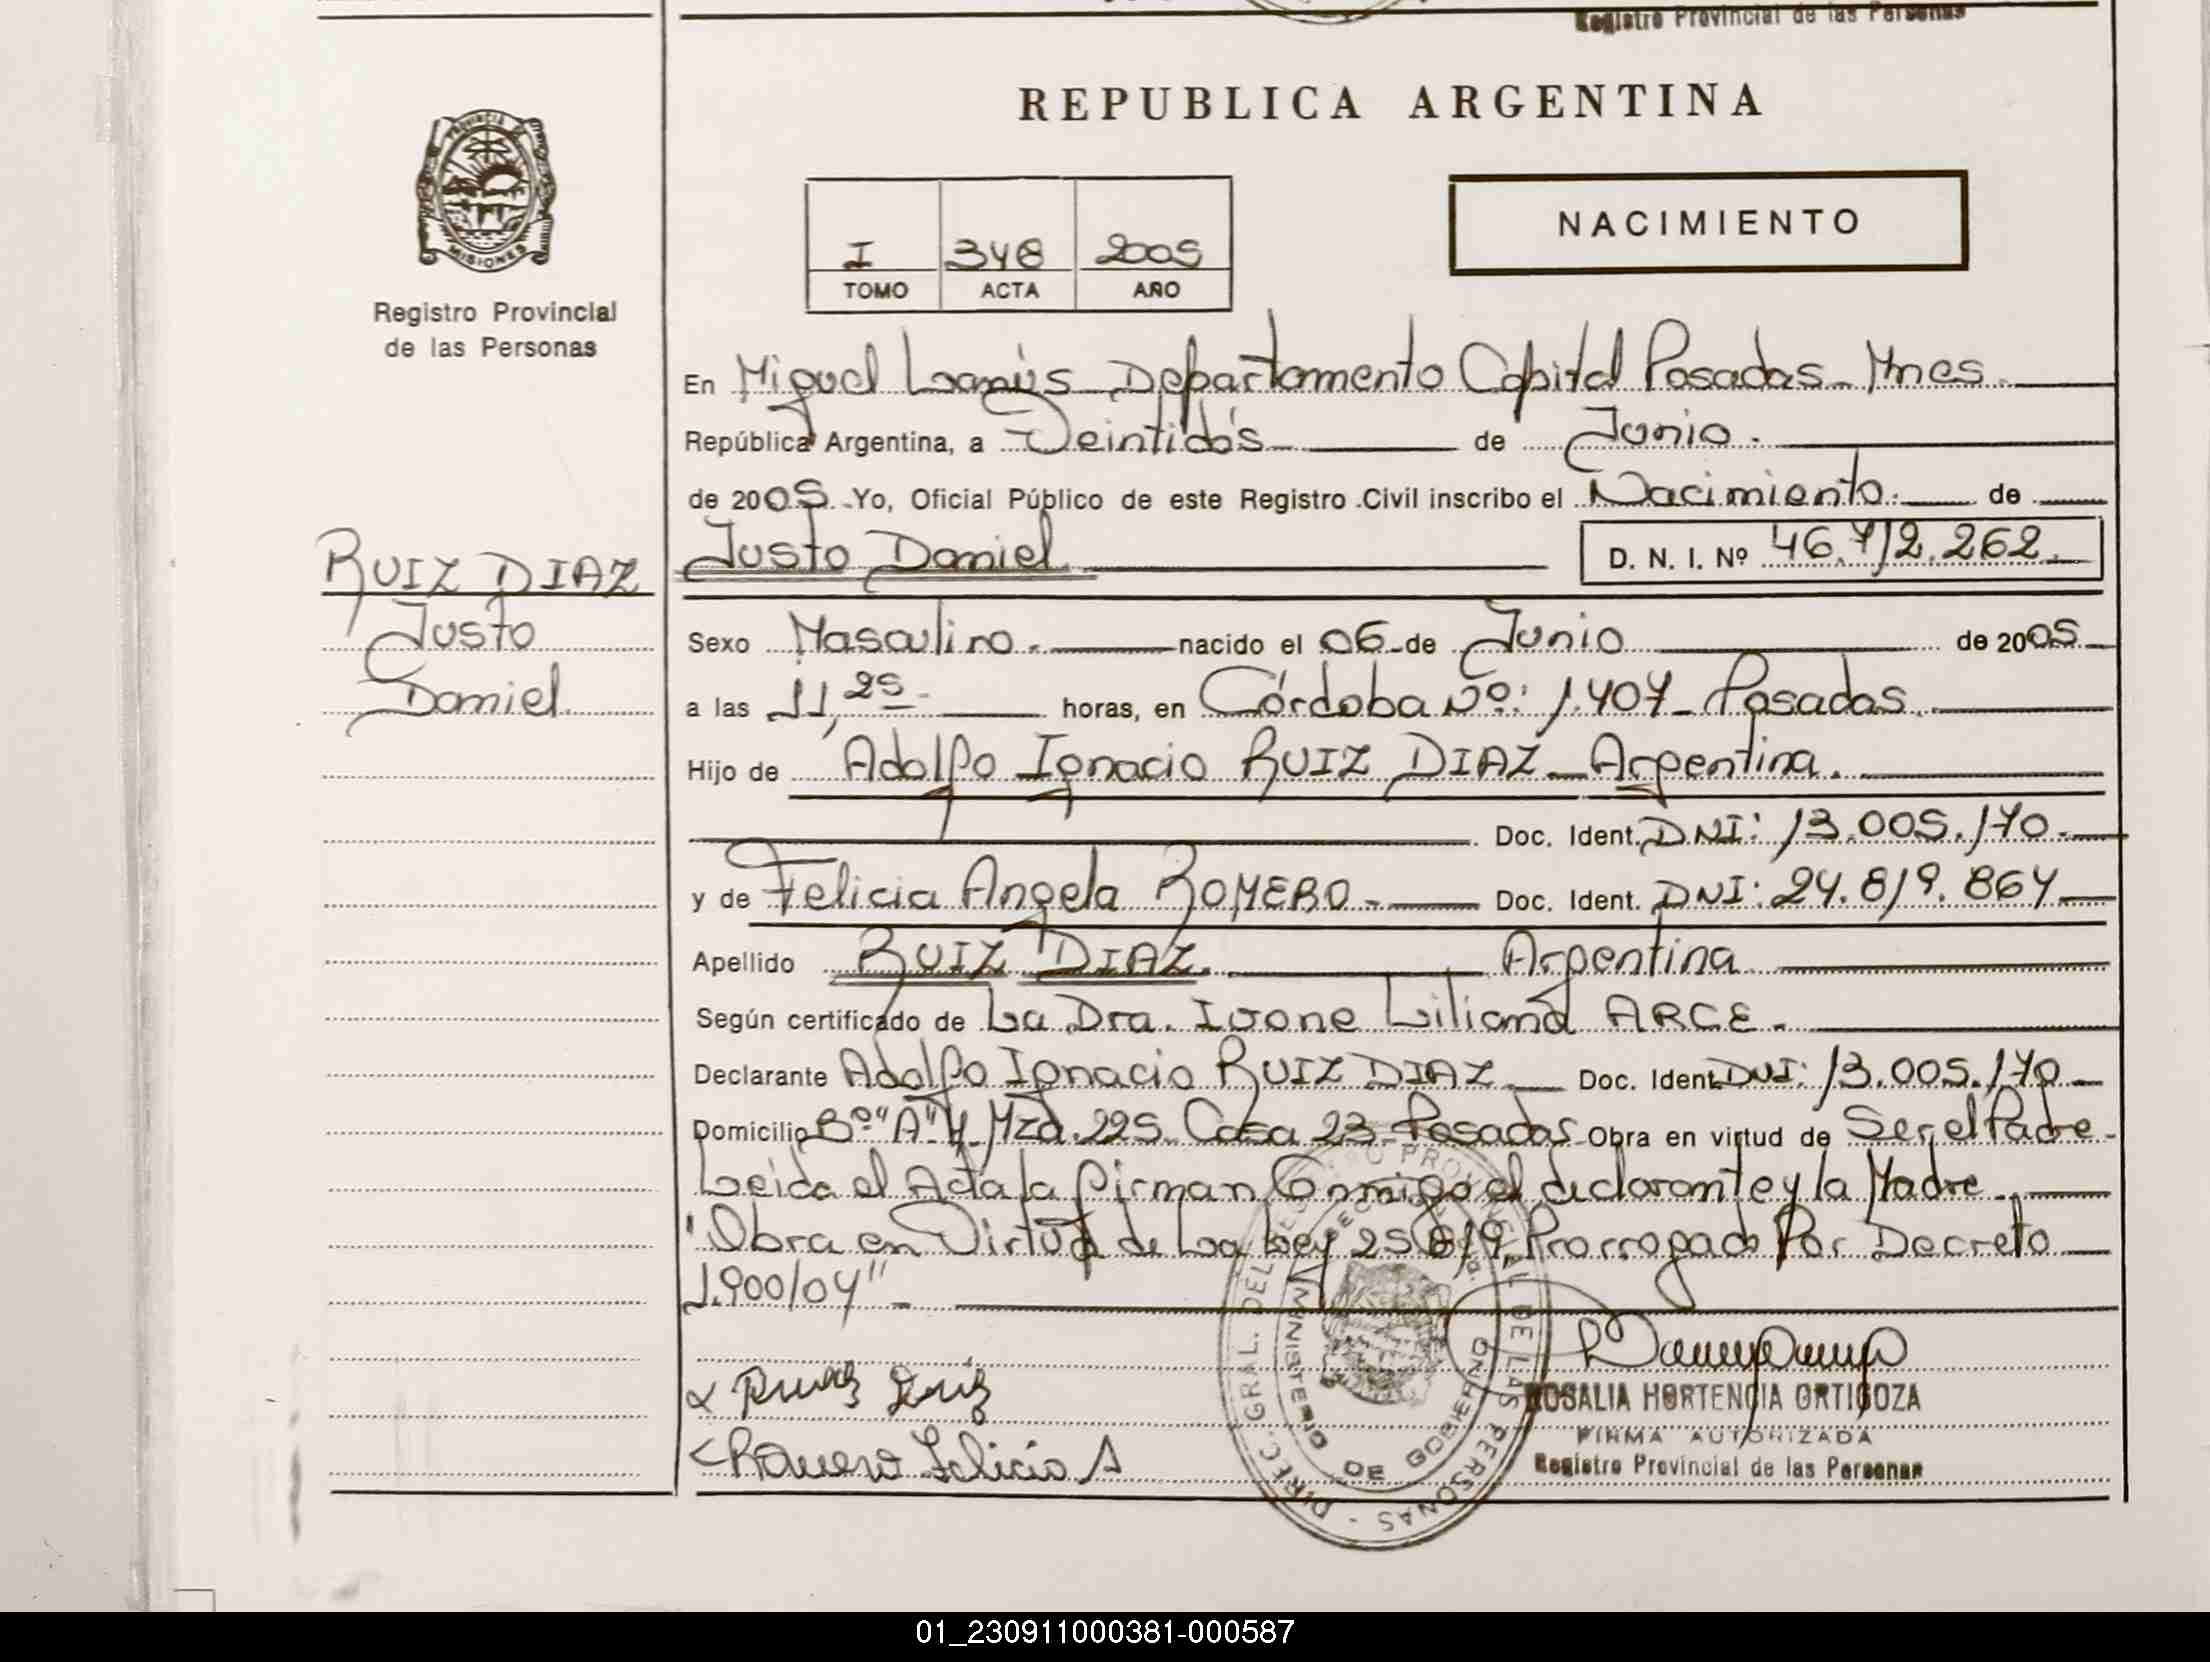 Registro Provincial de las Personas
REPUBLICA ARGENTINA
PROVINCIA DE
MISIONES
Registro Provincial
de las Personas
I 348 2005
TOMO ACTA AÑO
NACIMIENTO
En Miguel Lanús Departamento Capital Posadas - Mnes.
República Argentina, a Veintidós de Junio.
de 2005. Yo, Oficial Público de este Registro Civil inscribo el Nacimiento. de
RUIZ DIAZ
Justo
Daniel.
Justo Daniel. D. N. I. Nº 46.712.262.
Sexo Masculino. nacido el 06 de Junio de 2005
a las 11,25 horas, en Córdoba Nº: 1.407 - Posadas.
Hijo de Adolfo Ignacio RUIZ DIAZ - Argentina.
Doc. Ident. DNI: 13.005.170.
y de Felicia Angela ROMERO - Doc. Ident. DNI: 24.819.864
Apellido RUIZ DIAZ. Argentina
Según certificado de La Dra. Ivone Liliana ARCE.
Declarante Adolfo Ignacio RUIZ DIAZ Doc. Ident. DNI: 13.005.170
Domicilio Bº "A" 4 Mza. 225 Casa 23 - Posadas Obra en virtud de Ser el Padre -
Leida el Acta la firman Conmigo el declarante y la Madre
"Obra en Virtud de La Ley 25819, Prorrogado Por Decreto
1.900/04" -
Ruiz Diaz
Romero Felicia A
DIREC. GRAL. DEL REGISTRO PROVINCIAL DE LAS PERSONAS -
MINISTERIO DE GOBIERNO
ROSALIA HORTENCIA ORTIGOZA
FIRMA AUTORIZADA
Registro Provincial de las Personas
01_230911000381-000587